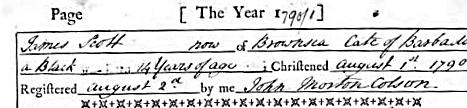 Page [ The Year 1790/1 ]
James Scott now of Brownsea Late of Barbado
a Black 14 Years of age ; Christened august 1st 1790
Registered august 2d by me John Morton Colson.